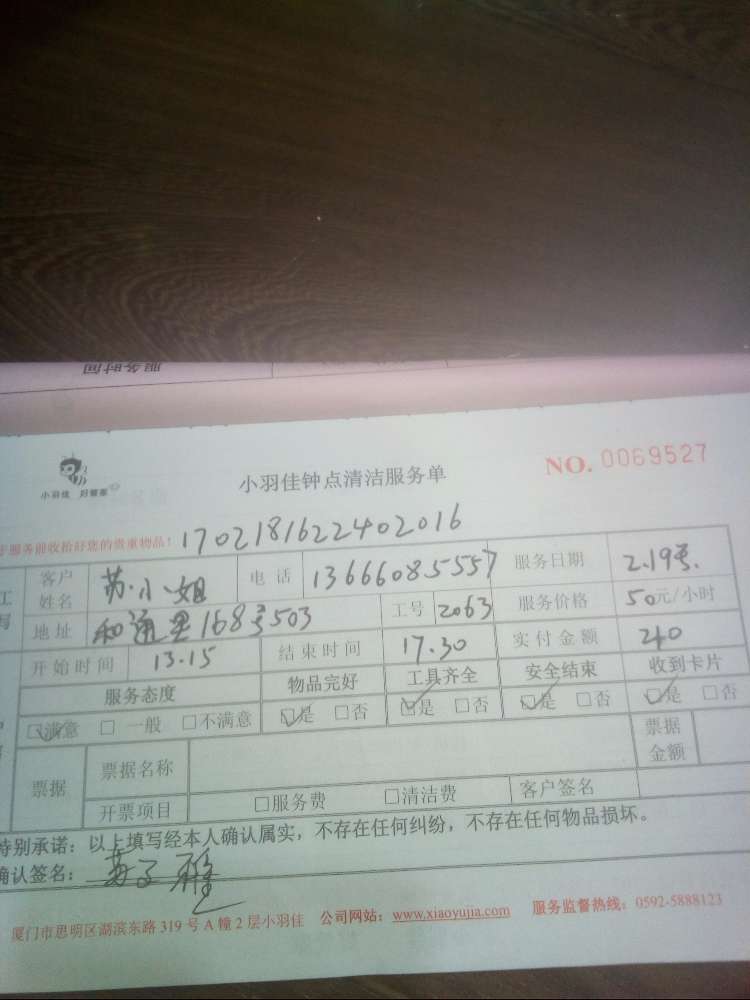 服务时间
小羽佳 好管家
小羽佳钟点清洁服务单
NO. 0069527
于服务前收拾好您的贵重物品!
1702181622402016
客户姓名 苏小姐 电话 13666085557 服务日期 2.19号.
地址 和通里168号503 工号 2063 服务价格 50元/小时
开始时间 13.15 结束时间 17.30 实付金额 240
服务态度 物品完好 工具齐全 安全结束 收到卡片
☑满意 □一般 □不满意 ☑是 □否 ☑是 □否 ☑是 □否 ☑是 □否
票据 票据名称 票据金额
开票项目 □服务费 □清洁费 客户签名
特别承诺:以上填写经本人确认属实,不存在任何纠纷,不存在任何物品损坏。
确认签名:
厦门市思明区湖滨东路319号A幢2层小羽佳 公司网站:www.xiaoyujia.com 服务监督热线:0592-5888123